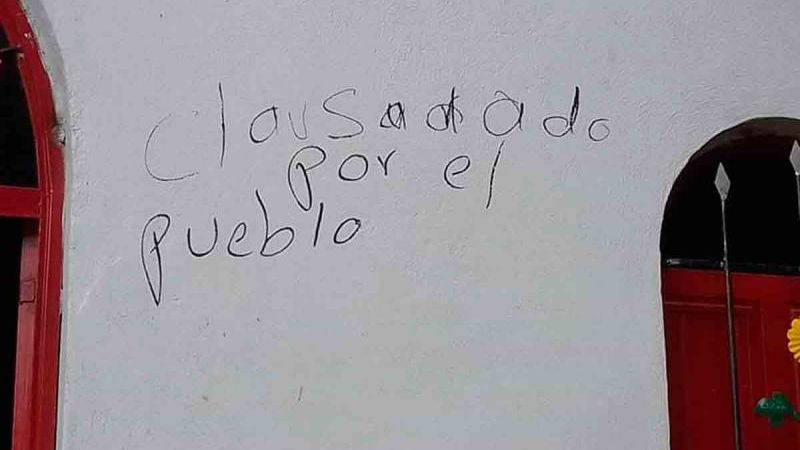 Clausadtado
por el
pueblo